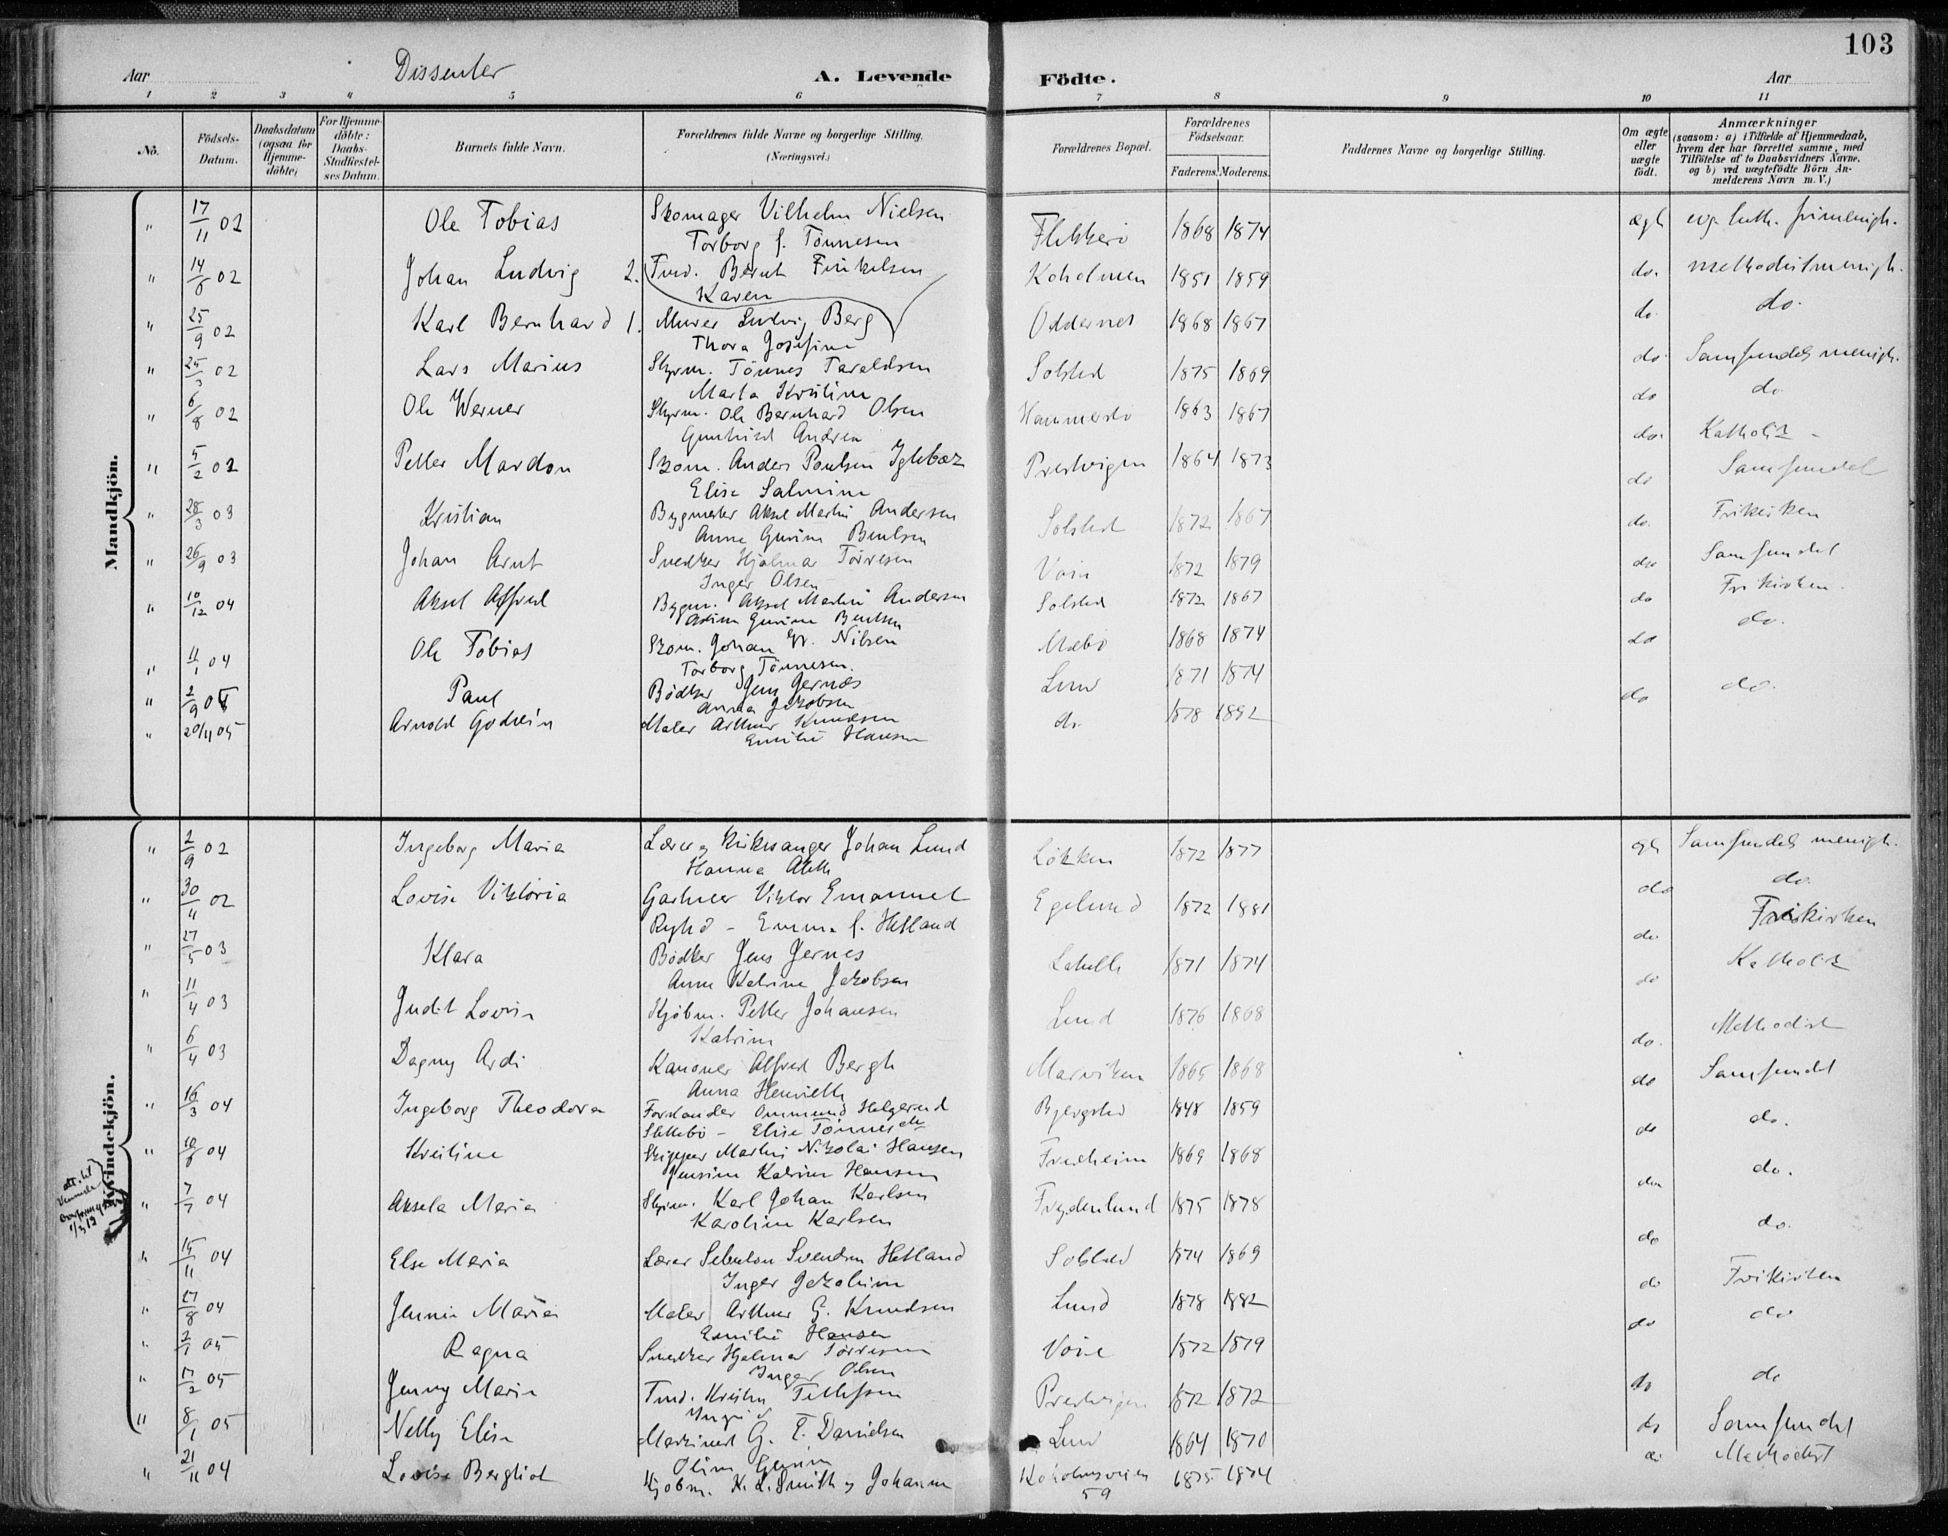 103
Aar
Dissenter
A. Levende
Födte.
Aar
1 2 3 4 5 6 7 8 9 10 11
No.
Födsels-Datum.
Daabsdatum (ogsaa for Hjemme-döbte)
For Hjemme-döbte: Daabs-Stadfæstel-ses Datum.
Barnets fulde Navn.
Forældrenes fulde Navne og borgerlige Stilling.
(Næringsvei.)
Forældrenes Bopæl.
Forældrenes Födselsaar.
Faderens. Moderens.
Faddernes Navne og borgerlige Stilling.
Om ægte eller uægte födt.
Anmærkninger
(saasom: a) i Tilfælde af Hjemmedaab,
hvem der har forrettet samme, med
Tilföielse af to Daabsvidners Navne,
og b) ved uægtefödte Börn An-
melderens Navn m. V.)
Mandkjön.
" 17/11 02 Ole Tobias Skomager Vilhelm Nielsen Flekkerö 1868 1874 ægte evg. luth. frimenigh.
Torborg f. Tönnesen
" 14/8 02 Johan Ludvig 2. Tmd. Bernt Finkelsen Koholmen 1851 1859 do. methodistmenigh.
Karen
" 25/9 02 Karl Bernhard 1. Murer Ludvig Berg Oddernes 1868 1867 do. do.
Thora Josefine
" 25/3 02 Lars Marius Styrm. Tönnes Taraldsen Solsted 1875 1869 do Samfundets menigh.
Marta Kristine
" 6/8 02 Ole Werner Styrm. Ole Bernhard Olsen 1863 1867 do do
Gunhild Andrea
" 5/2 02 Petter Mardon Skom. Anders Poulsen Iglebæk Prestvigen 1864 1873 do. Katholik -
Elise Salmine
" 28/3 03 Kristian Bygmester Aksel Martin Andersen Solsted 1872 1867 do Samfundet
Anne Gurine Bentsen
" 26/9 03 Johan Arnt Snedker Hjalmar Törresen Voie 1872 1879 do. Frikirken
Inger Olsen
" 10/12 04 Aksel Alfred Bygm. Aksel Martin Andersen Solsted 1872 1867 do Samfundet
Gurine Bentsen
" 11/1 04 Ole Tobias Skom. Johan W. Nilsen Mæbö 1868 1874 do Frikirken.
Torborg Tönnesen.
" 2/9 05 Paul Bödker Jens Jernes Lund 1871 1874 do do.
Anna Jakobsen
" 20/11 05 Arnold Godvin Maler Arthur Knudsen do 1878 1882 do do.
Emilie Hansen
Kvindekjön.
" 2/9 02 Ingeborg Maria Lærer og Kirkesanger Johan Lund Lökken 1872 1877 ægte Samfundets menigh.
Hanna
" 30/11 02 Lovise Viktoria Gartner Viktor Emanuel Egelund 1872 1881 do do.
Ryhd - Emma f. Hetland
" 27/5 03 Klara Bödker Jens Jernes 1871 1874 do. Frikirken
Anne Katrine Jakobsen
" 11/4 03 Judit Lovise Kjöbm. Petter Johansen Lund 1876 1868 do Katholik
Katrine
" 6/4 03 Dagny Ardi Kanoner Alfred Bergh Marviken 1865 1868 do. Methodist
Anna Henriette
" 16/3 04 Ingeborg Theodora Forstander Ommund Helgerud Bjergsted 1848 1859 do Samfundet
Slettebö - Elise Tönnesdtr
" 10/8 04 Kristine Skipper Martin Nikolai Hansen Fredheim 1869 1868 do do.
Jensine Katrine Hansen
" 7/7 04 Aksela Maria Styrm. Karl Johan Karlsen Frydenlund 1875 1878 do do.
Karoline Karlsen
" 15/11 04 Else Maria Lærer Svendsen Hetland Solsted 1874 1869 do do.
Inger Jakobine
" 27/8 04 Jennie Maria Maler Arthur G. Knudsen Lund 1878 1882 do Frikirken
Emilie Hansen
" 2/1 05 Ragna Snedker Hjalmar Törresen Voie 1872 1879 do do
Inger Olsen
" 17/2 05 Jenny Marie Tmd. Kristen Tellefsen Prestvigen 1872 1872 do do
" 8/1 05 Nelly Elise Maskinist G. T. Danielsen Lund 1864 1870 do Samfundet
" 21/11 04 Lovise Bergliot Kjöbm. K. L. Smith og Johanne Koholmsveien 59 1875 1874 do Methodist